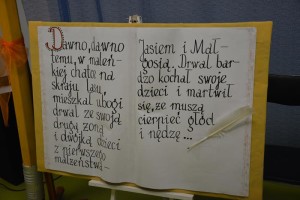 Dawno, dawno
temu, w maleń-
kiej chatce na
skraju lasu,
mieszkał ubogi
drwal ze swoją
drugą żoną
i dwójką dzieci
z pierwszego
małżeństwa -
Jasiem i Mał-
gosią. Drwal bar-
dzo kochał swoje
dzieci i martwił
się, że muszą
cierpieć głód
i nędzę...